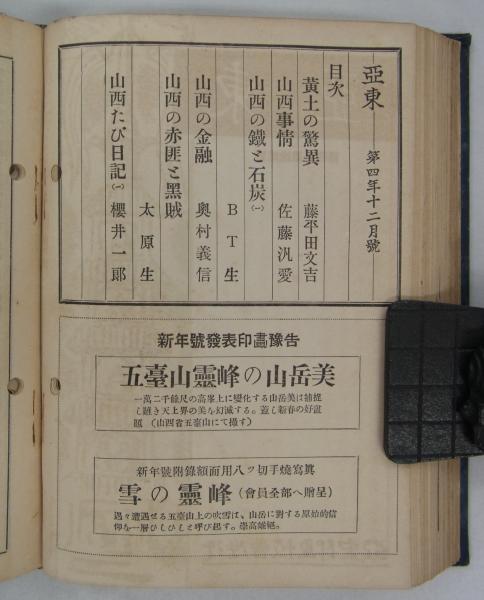 亞東 第四年十二月號
目次
黃土の驚異 藤平田文吉
山西事情 佐藤汎愛
山西の鐵と石炭(一) BT生
山西の金融 奥村義信
山西の赤匪と黑賊 太原生
山西たび日記(一) 櫻井一郞
新年號發表印畫豫告
五臺山靈峰の山岳美
一萬二千餘尺の高峯上に變化する山岳美は捕捉
し難き天上界の美を幻滅する。蓋し新春の好畫
題 (山西省五臺山にて撮す)
新年號附錄額面用八ツ切手燒寫眞
雪の靈峰 (會員全部へ贈呈)
遇々遭遇せる五臺山上の吹雪は、山岳に對する原始的信
仰を一層ひしひしと呼び起す。崇高雄絕。